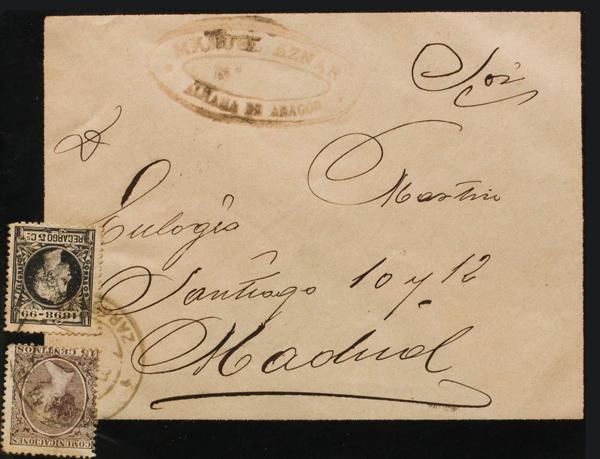 MANUEL AZNAR
ALHAMA DE ARAGON
Sor
D.
Eulogio Martin
Santiago 10 y 12
Madrid
RECARGO 5 Cs
1898-99
15 CENTIMOS
COMUNICACIONES